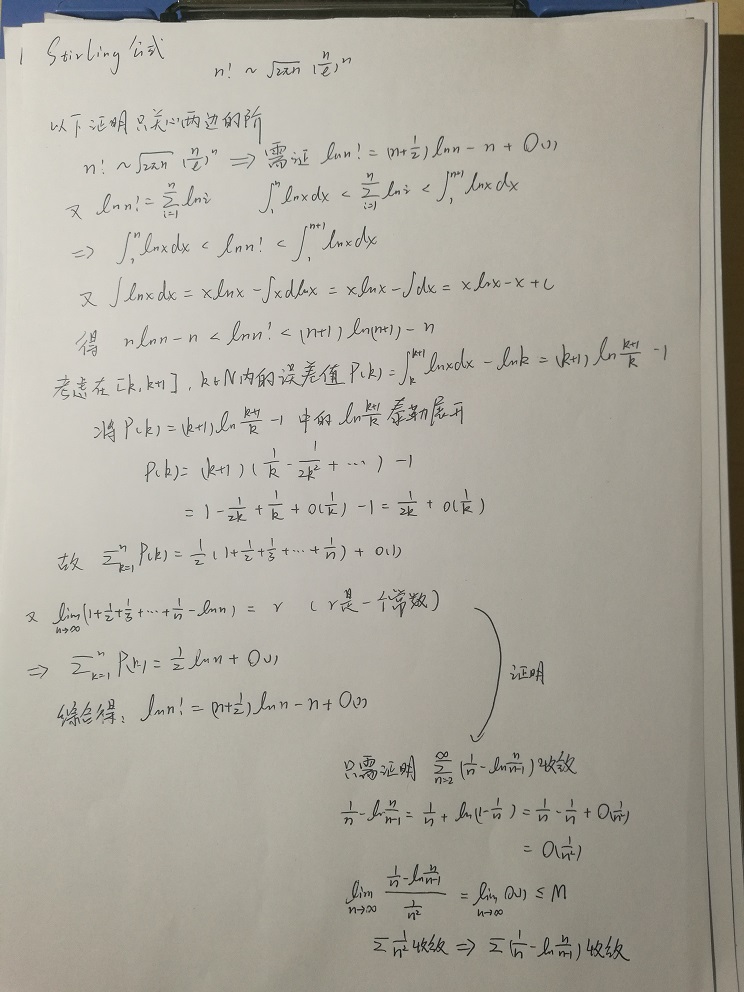 1 Stirling 公式
n! ~ √2πn (n/e)^n
以下证明只关心两边的阶
n! ~ √2πn (n/e)^n ⇒ 需证 ln n! = (n+1/2) ln n - n + O(1)
又 ln n! = Σ_{i=1}^{n} ln i ∫_1^n ln x dx < Σ_{i=1}^{n} ln i < ∫_1^{n+1} ln x dx
⇒ ∫_1^n ln x dx < ln n! < ∫_1^{n+1} ln x dx
又 ∫ ln x dx = x ln x - ∫ x d ln x = x ln x - ∫ dx = x ln x - x + C
得 n ln n - n < ln n! < (n+1) ln(n+1) - n
考虑在 [k, k+1], k∈N 内的误差值 P(k) = ∫_k^{k+1} ln x dx - ln k = (k+1) ln (k+1)/k - 1
将 P(k) = (k+1) ln (k+1)/k - 1 中的 ln (k+1)/k 泰勒展开
P(k) = (k+1) (1/k - 1/2k² + ⋯) - 1
= 1 - 1/2k + 1/k + o(1/k) - 1 = 1/2k + o(1/k)
故 Σ_{k=1}^{n} P(k) = 1/2 (1 + 1/2 + 1/3 + ⋯ + 1/n) + o(1)
又 lim_{n→∞} (1 + 1/2 + 1/3 + ⋯ + 1/n - ln n) = r (r是一个常数)
⇒ Σ_{k=1}^{n} P(k) = 1/2 ln n + O(1)
综合得: ln n! = (n+1/2) ln n - n + O(1)
证明
只需证明 Σ_{n=2}^{∞} (1/n - ln n/(n-1)) 收敛
1/n - ln n/(n-1) = 1/n + ln(1 - 1/n) = 1/n - 1/n + O(1/n²)
= O(1/n²)
lim_{n→∞} (1/n - ln n/(n-1)) / (1/n²) = lim_{n→∞} O(1) ≤ M
Σ 1/n² 收敛 ⇒ Σ (1/n - ln n/(n-1)) 收敛